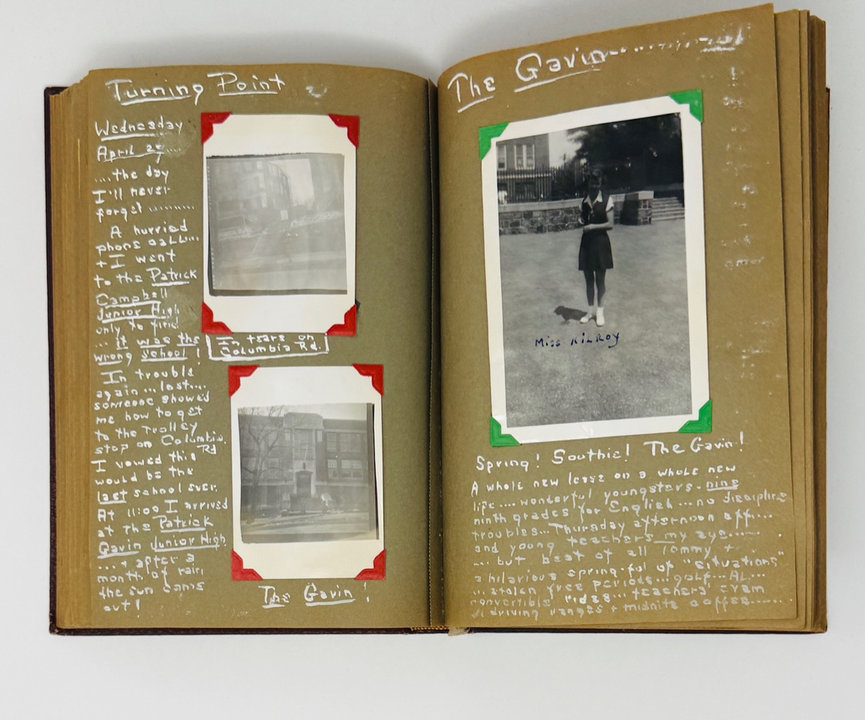 Turning Point
Wednesday
April 25....
....the day
I'll never
forget ........
A hurried
phone call...
+ I went
to the Patrick
Campbell
Junior High
only to find
... it was the
wrong school!
In trouble
again...lost...
someone showed
me how to get
to the trolley
stop on Columbia
Rd
I vowed this
would be the
last school ever.
At 11:00 I arrived
at the Patrick
Gavin Junior High,
...+ after a
month of rain
the sun came
out!
In tears on
Columbia Rd.
The Gavin!
The Gavin
Miss Kilroy
Spring! Southie! The Gavin!
A whole new lease on a whole new
life....wonderful youngsters.. nine
ninth grades for English...no discipline
troubles...Thursday afternoon off....
and young teachers my age.....
...but best of all Tommy +
a hilarious spring-ful of "situations"
...stolen free periods...golf...AL...
convertible rides...teachers' exam
driving ranges + midnite coffee......